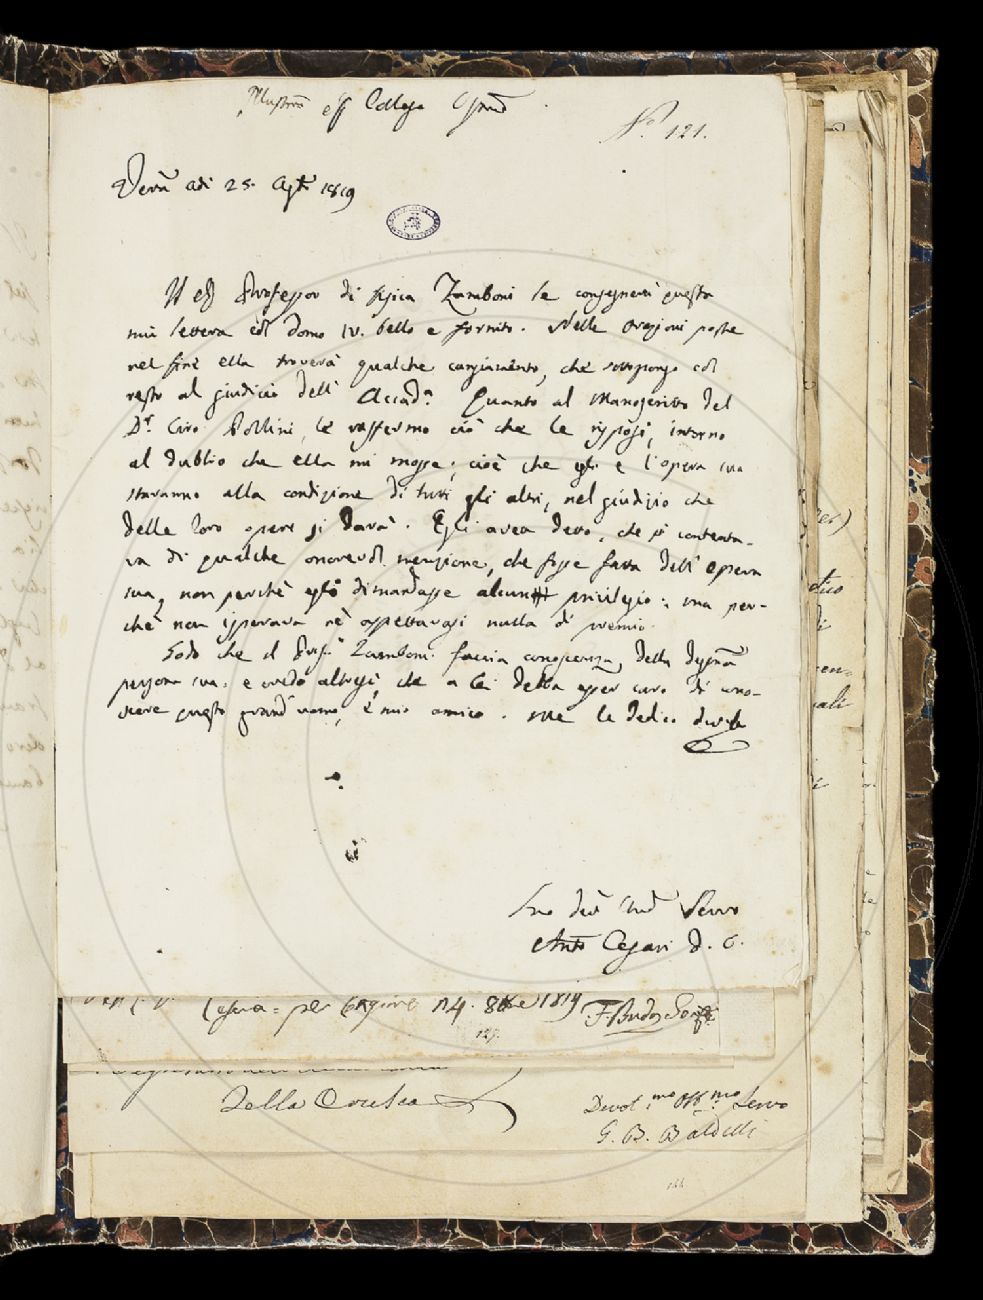 N.° 121.
Veron adi 25. Agto 1819
Il Professor di fisica Zamboni le consegnerà questa
mia lettera col tomo IV. bello e fornito. Nelle orazioni poste
nel fine ella troverà qualche cangiamento, che sottopongo col
resto al giudicio dell' Accad.a Quanto al Manoscritto del
D.r Ciro Pollini, le raffermo ciò che le risposi, intorno
al dubbio che ella mi mosse; cioè che egli e l'opera sua
staranno alla condizione di tutti gli altri, nel giudizio che
delle loro opere si darà. Egli avea detto, che si contenta-
va di qualche onorevol menzione, che fosse fatta dell' opera
sua, non perchè egli dimandasse alcun privilegio: ma per-
chè non isperava nè aspettavasi nulla di premio.
Godo che il Prof. Zamboni faccia conoscenza della degna
persona sua: e credo altresì, che a Lei debba esser caro di cono-
scere questo grand' uomo, è mio amico. Me le dedico
Suo Servo
Anto Cesari D. O.
Cesari = per 1819
129.
Della Crusca
Devot.mo Obb.mo Servo
G. B. Baldelli